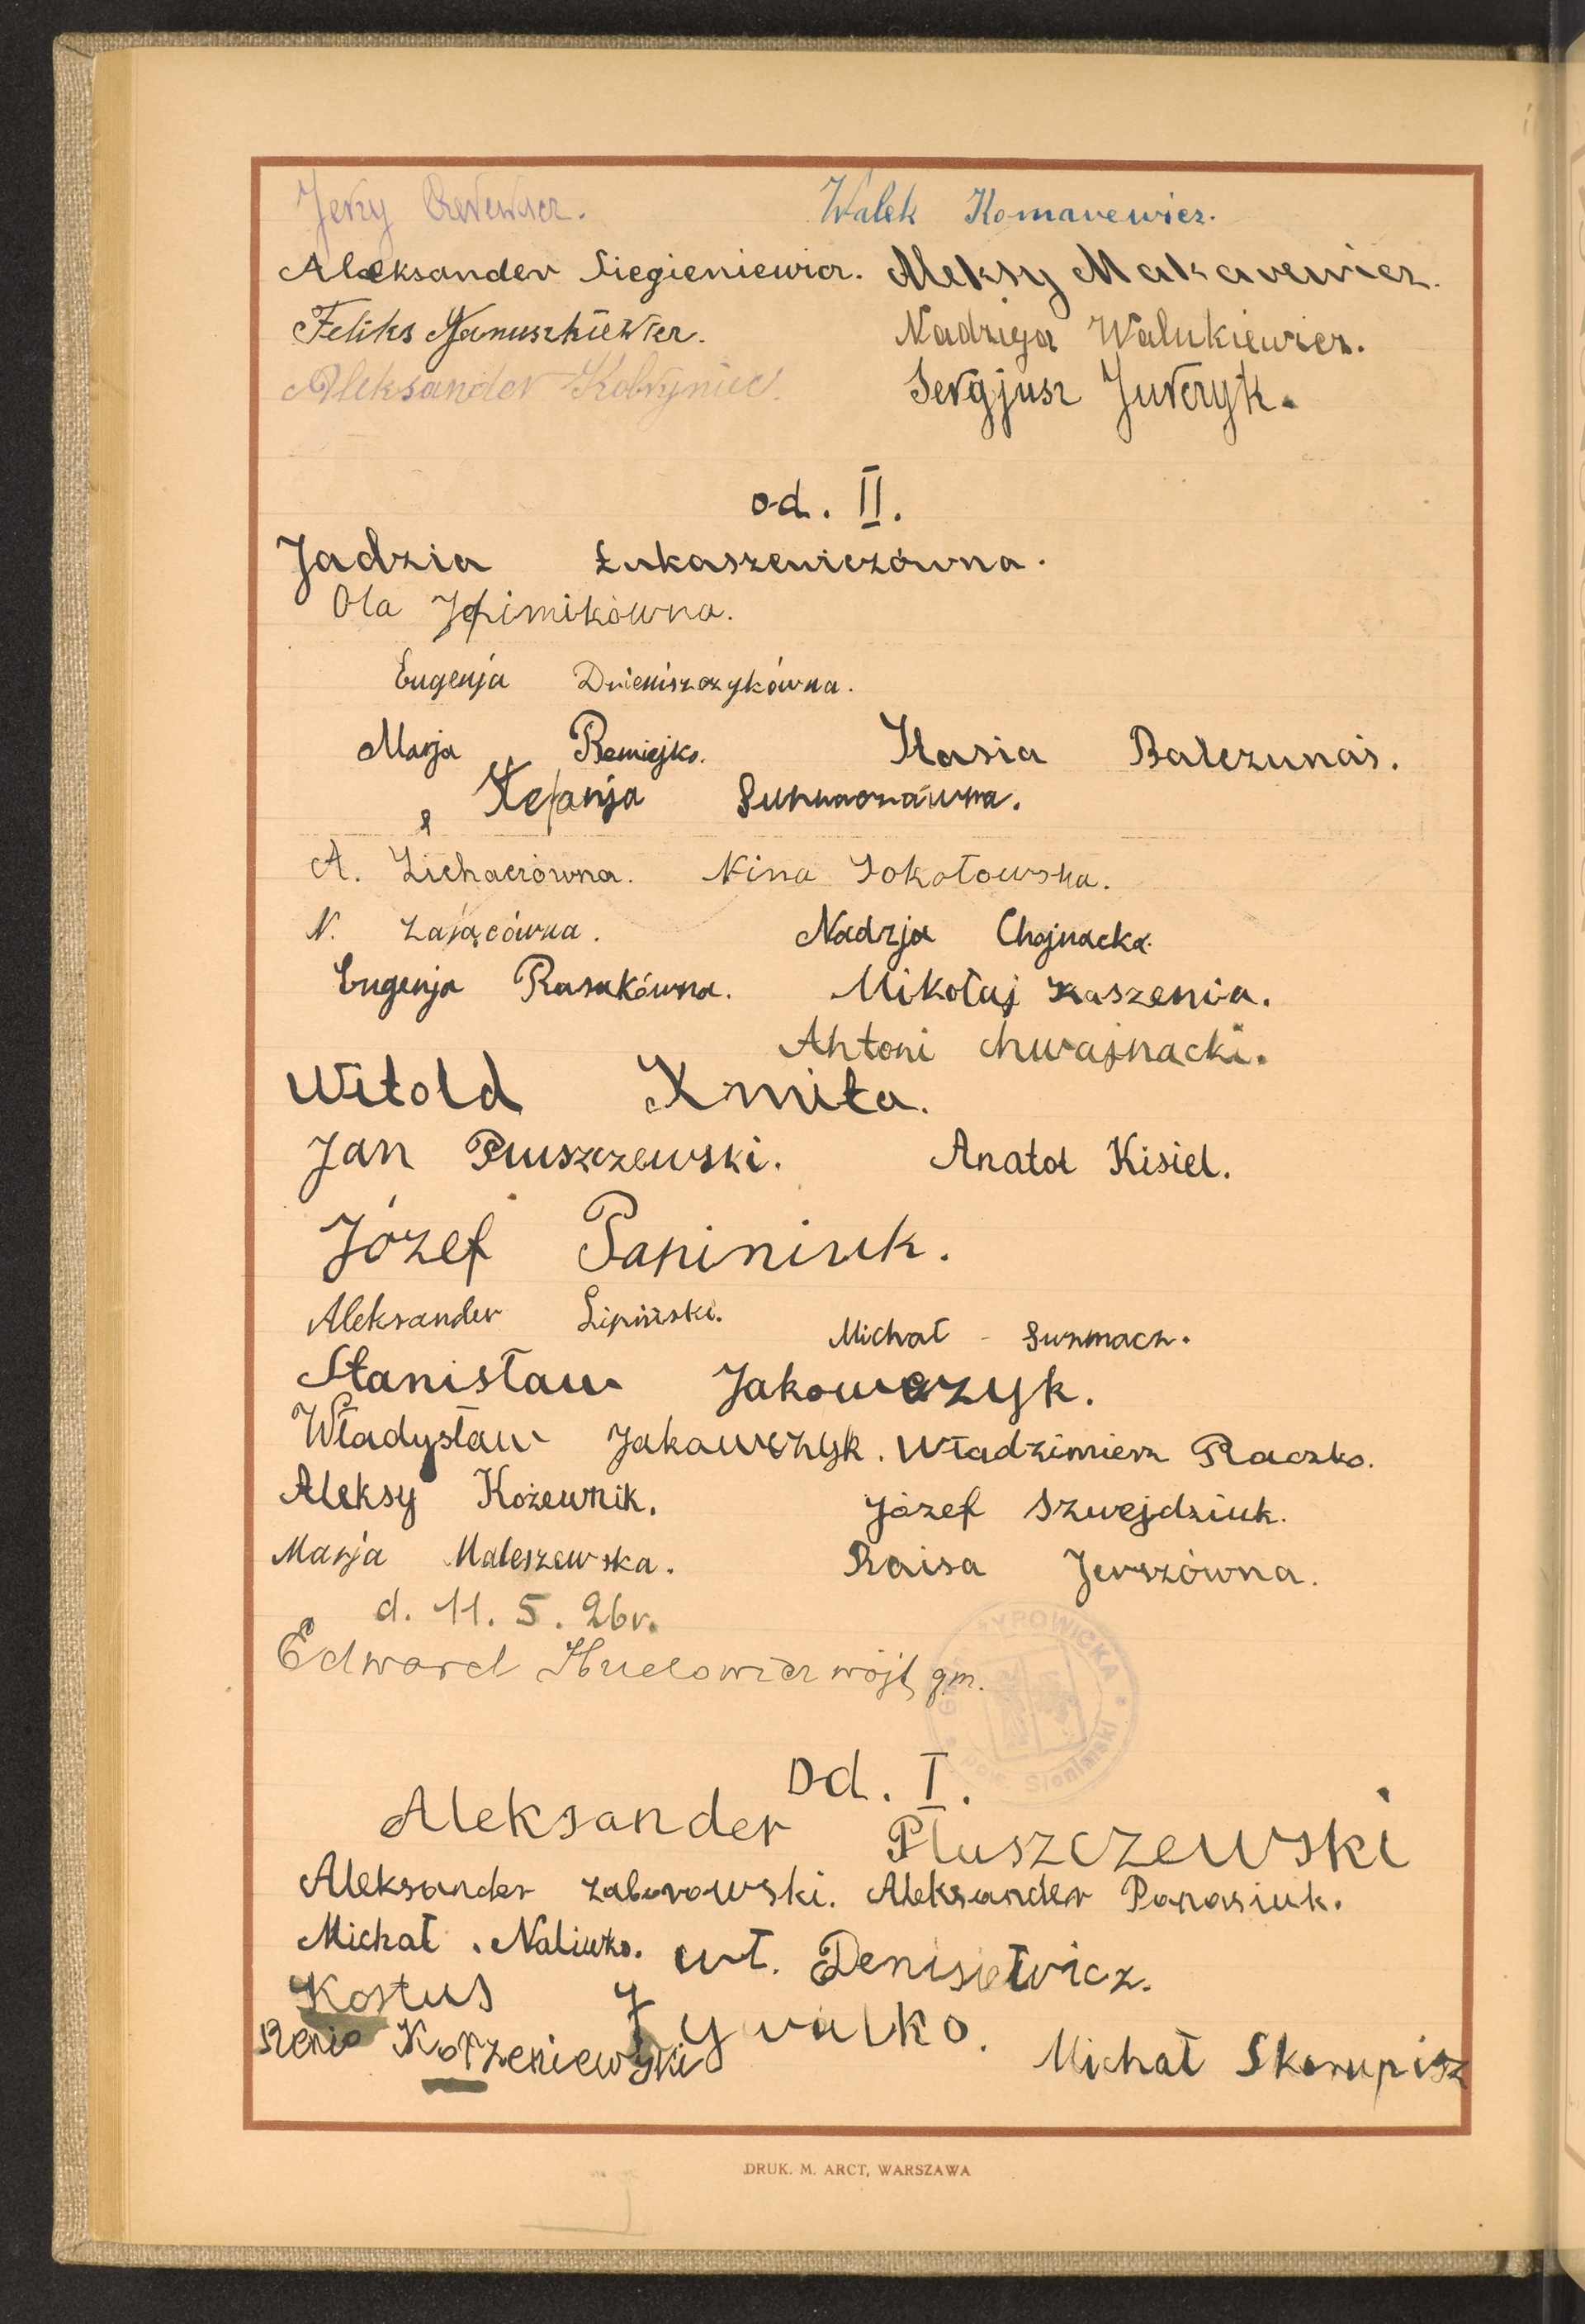 Jerzy
Walek Komarewicz.
Aleksander Siegieniewicz. Aleksy Makarewicz.
Feliks Januszkiewicz. Nadzieja Walukiewicz.
Aleksander Kobryniec. Sergjusz Jurczyk.
od. II.
Jadzia Łukaszewiczówna.
Ola Jefimikówna.
Eugenja Dzieniszczykówna.
Marja Remiejko. Stasia Balczunas.
Stefanja Surmaczówna.
A. Lichaczówna. Nina Sokołowska.
N. Zającówna. Nadzja Chojnacka.
Eugenja Rasakówna. Mikołaj Kaszenia.
Antoni Chwajnacki.
Witold Kmita.
Jan Pluszczewski. Anatol Kisiel.
Józef Papiniuk.
Aleksander Lipiński. Michał Surmacz.
Stanisław Jakowczyk.
Władysław Jakowczyk. Władzimierz Raczko.
Aleksy Kożewnik. Józef Szwejdziuk.
Marja Maleszewska. Raisa Jerszówna.
d. 11. 5. 26 r.
Edward wójt gm.
YPOWICKA
Pow. Słonimski
Od. I.
Aleksander Pluszczewski
Aleksander Zaborowski. Aleksander Panasiuk.
Michał Naliwko. Wł. Denisiewicz.
Kostuś Żywałko.
Renio Korzeniewski Michał Skorupisz
DRUK. M. ARCT, WARSZAWA